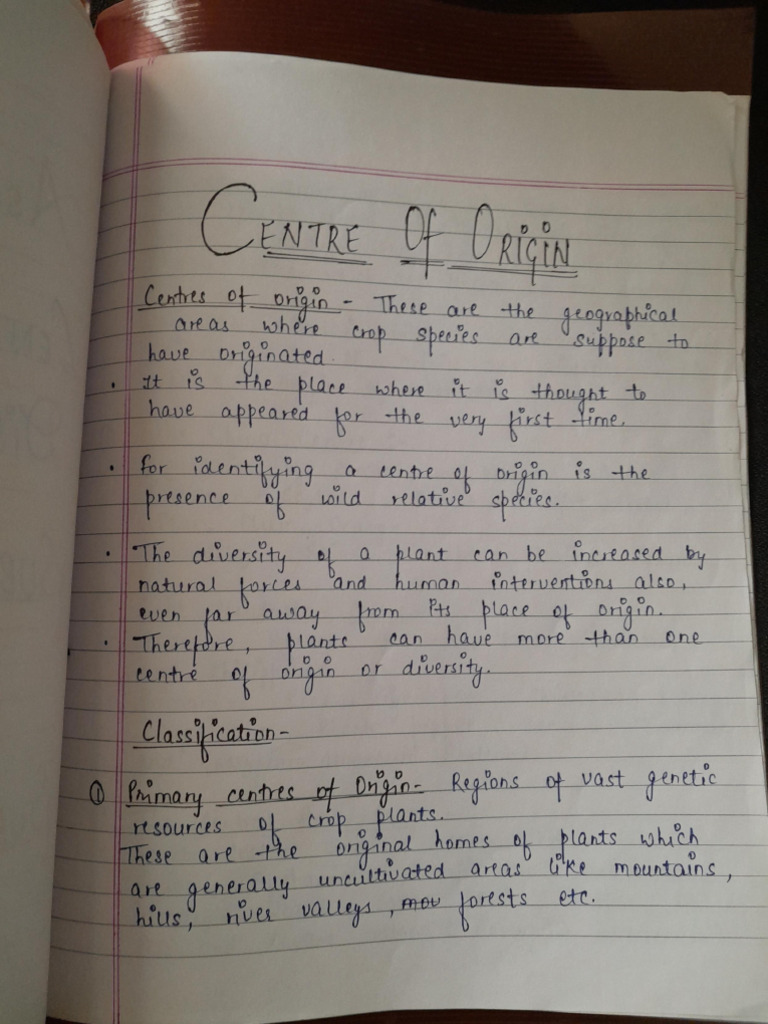 CENTRE Of ORIGIN
Centres of origin - These are the geographical
areas where crop species are suppose to
have originated.
• It is the place where it is thought to
have appeared for the very first time.
• for identifying a centre of origin is the
presence of wild relative species.
• The diversity of a plant can be increased by
natural forces and human interventions also,
even far away from its place of origin.
• Therefore, plants can have more than one
centre of origin or diversity.
Classification-
① Primary centres of Origin- Regions of vast genetic
resources of crop plants.
These are the original homes of plants which
are generally uncultivated areas like mountains,
hills, river valleys, forests etc.